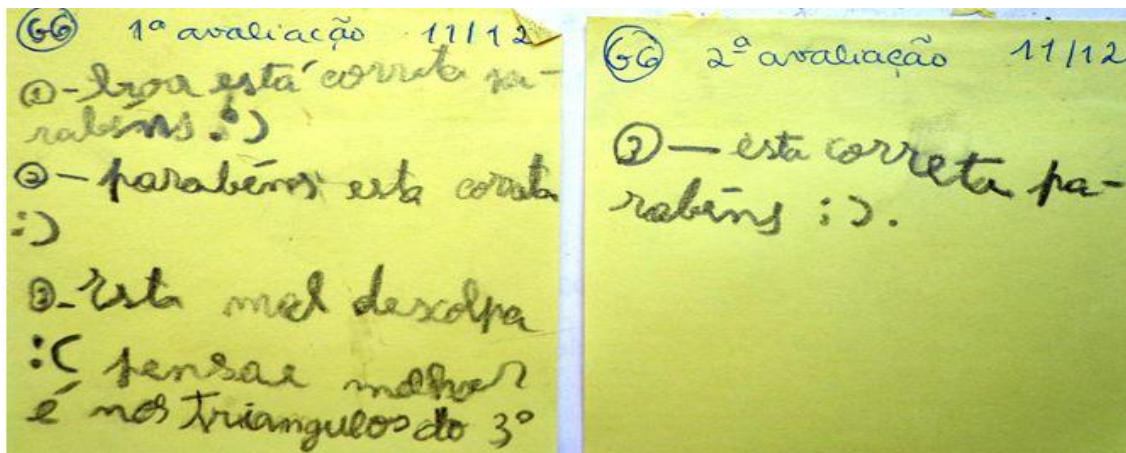 G6 1ª avaliação 11/12
①- boa está correta pa-
rabéns :)
②- parabéns esta correta
:)
③- Esta mal descolpa
:( pensae melhor
é nos triangulos do 3º
G6 2ª avaliação 11/12
③- esta correta pa-
rabéns :).